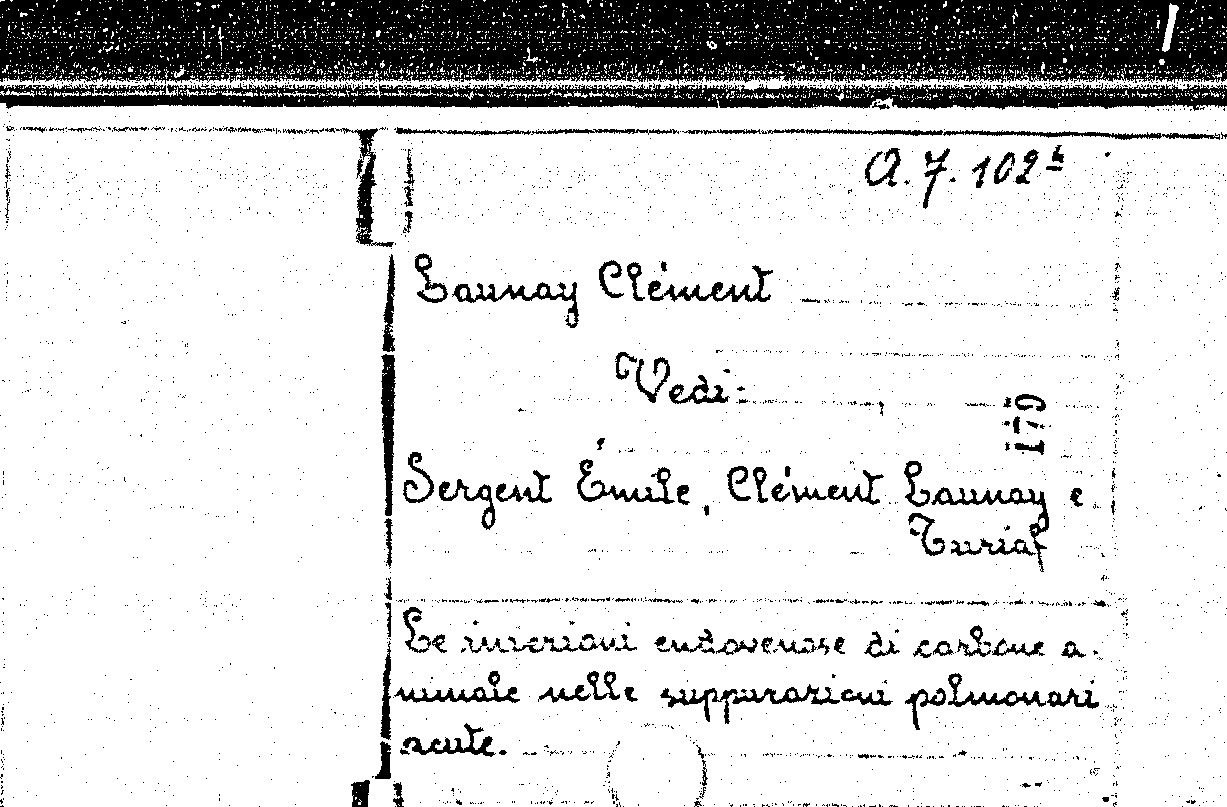 A. 7. 102
Launay Clément
Vedi:
179
Sergent Émile, Clément Launay e
Turiaf
Le iniezioni endovenose di carbone a-
nimale nelle suppurazioni polmonari
acute.